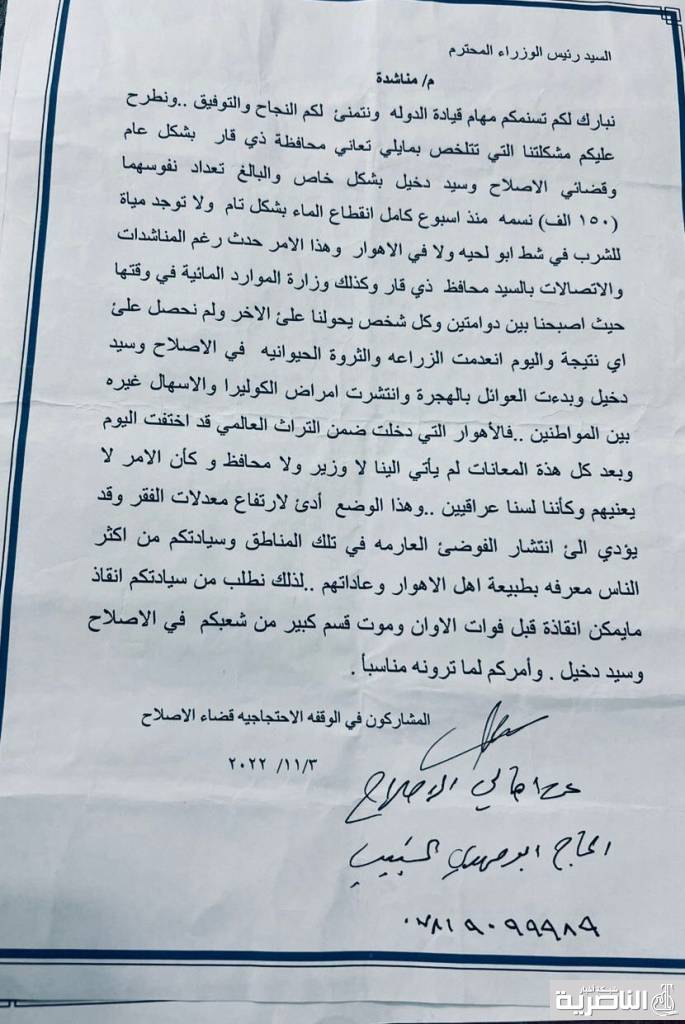 السيد رئيس الوزراء المحترم
م/ مناشدة
نبارك لكم تسنمكم مهام قيادة الدوله ونتمنئ لكم النجاح والتوفيق ..ونطرح
عليكم مشكلتنا التي تتلخص بمايلي تعاني محافظة ذي قار بشكل عام
وقضائي الاصلاح وسيد دخيل بشكل خاص والبالغ تعداد نفوسهما
(١٥٠ الف) نسمه منذ اسبوع كامل انقطاع الماء بشكل تام ولا توجد مياة
للشرب في شط ابو لحيه ولا في الاهوار وهذا الامر حدث رغم المناشدات
والاتصالات بالسيد محافظ ذي قار وكذلك وزارة الموارد المائية في وقتها
حيث اصبحنا بين دوامتين وكل شخص يحولنا علئ الاخر ولم نحصل علئ
اي نتيجة واليوم انعدمت الزراعه والثروة الحيوانيه في الاصلاح وسيد
دخيل وبدءت العوائل بالهجرة وانتشرت امراض الكوليرا والاسهال غيره
بين المواطنين ..فالأهوار التي دخلت ضمن التراث العالمي قد اختفت اليوم
وبعد كل هذة المعانات لم يأتي الينا لا وزير ولا محافظ و كأن الامر لا
يعنيهم وكأننا لسنا عراقيين ..وهذا الوضع أدئ لارتفاع معدلات الفقر وقد
يؤدي الئ انتشار الفوضئ العارمه في تلك المناطق وسيادتكم من اكثر
الناس معرفه بطبيعة اهل الاهوار وعاداتهم ..لذلك نطلب من سيادتكم انقاذ
مايمكن انقاذة قبل فوات الاوان وموت قسم كبير من شعبكم في الاصلاح
وسيد دخيل . وأمركم لما ترونه مناسبأ .
المشاركون في الوقفه الاحتجاجيه قضاء الاصلاح
٢٠٢٢ /١١/٣
عن اهالي الاصلاح
الحاج ابو مهدي
٠٧٨١٩٠٩٩٩٨٩
شبكة أخبار
الناصرية